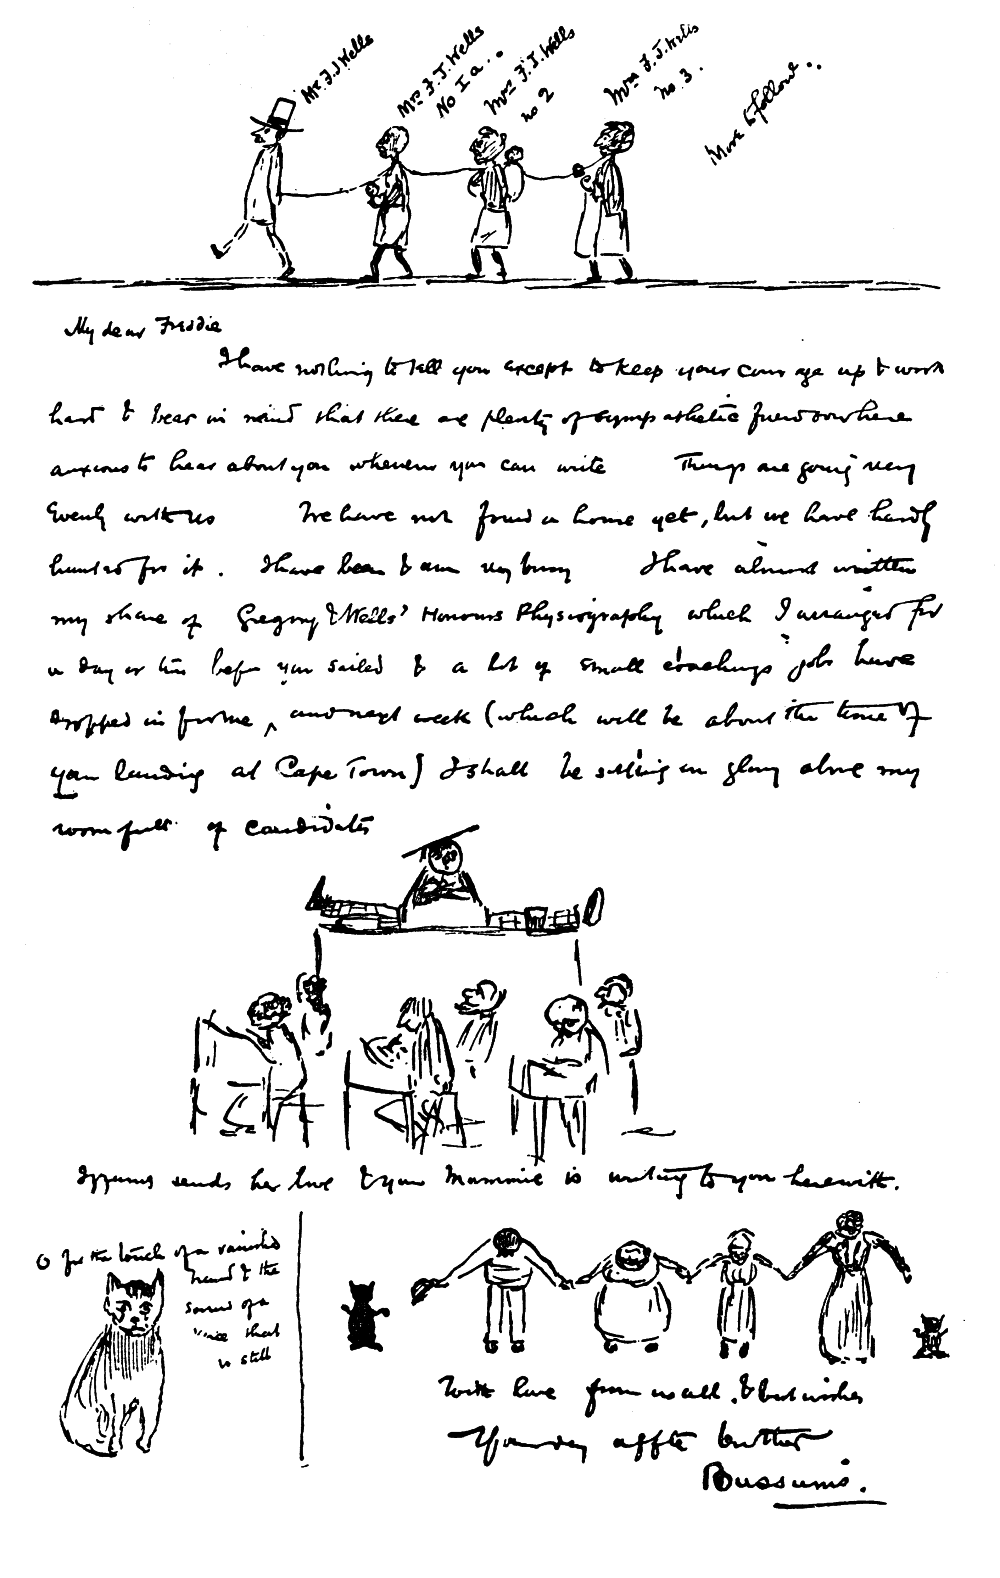 Mr. F. J. Wells
Mrs F. J. Wells
No 1 a..
Mrs F. J. Wells
no 2
Mrs F. J. Wells
no. 3.
More to follow..
My dear Freddie
I have nothing to tell you except to keep your courage up & work
hard & bear in mind that there are plenty of sympathetic friends here
anxious to hear about you whenever you can write Things are going very
evenly with us We have not found a home yet, but we have hardly
hunted for it. I have been & am very busy I have almost written
my share of Gregory & Wells' Honours Physiography which I arranged for
a day or two before you sailed & a lot of small coachings jobs have
dropped in for me, and next week (which will be about the time of
your landing at Cape Town) I shall be sitting in glory above my
room full of candidates
sends her love & your Mammie is writing to you herewith.
O for the touch of a vanished
hand & the
sound of a
voice that
is still
With love from us all, & best wishes
Your affte brother
Bussums.